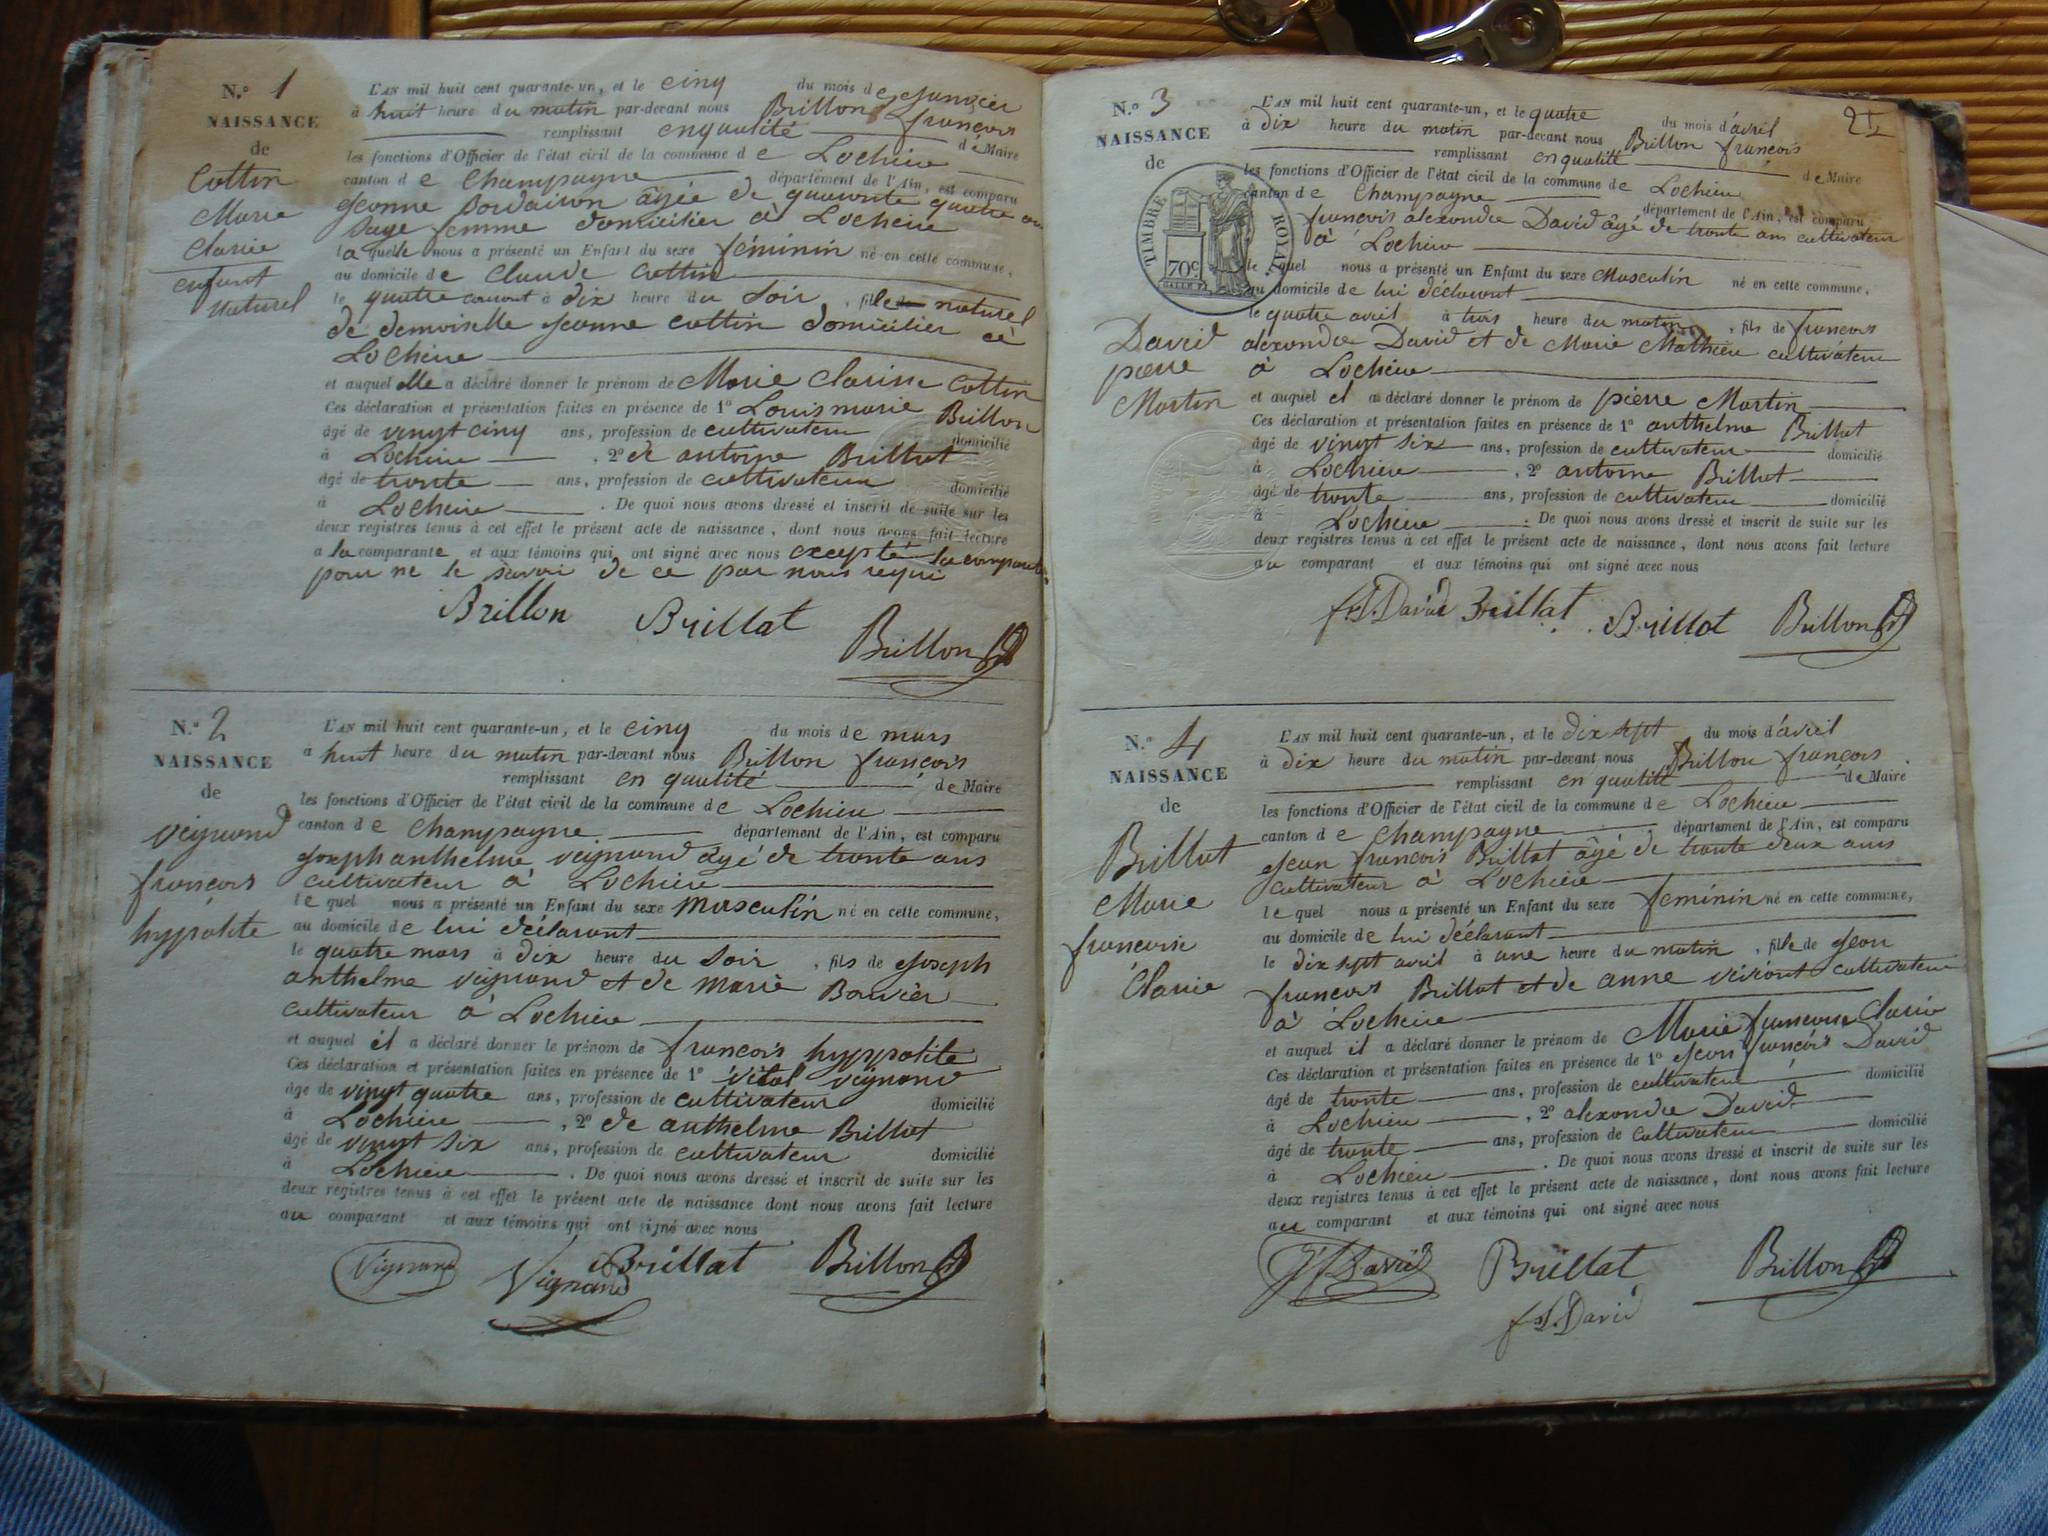 N.º 1
NAISSANCE
de
Cottin
Marie
Clarie
enfant
naturel
L'AN mil huit cent quarante-un, et le cinq du mois de Janvier
à huit heure du matin par-devant nous Brillon françois
remplissant en qualité de Maire
les fonctions d'Officier de l'état civil de la commune de Lochieu
canton de Champagne département de l'Ain, est comparu
Jeanne âgée de quarante quatre ans
sage femme domicilier à Lochieu
laquelle nous a présenté un Enfant du sexe féminin né en cette commune,
au domicile de Claude Cottin
le quatre courant à dix heure du soir, fille naturel
de demoiselle Jeanne Cottin domicilier à
Lochieu
et auquel elle a déclaré donner le prénom de Marie Clarisse Cottin
Ces déclaration et présentation faites en présence de 1º Louis marie Brillon
âgé de vingt cinq ans, profession de cultivateur domicilié
à Lochieu, 2º de antoine Brillat
âgé de trente ans, profession de cultivateur domicilié
à Lochieu. De quoi nous avons dressé et inscrit de suite sur les
deux registres tenus à cet effet le présent acte de naissance, dont nous avons fait lecture
a la comparante et aux témoins qui ont signé avec nous excepté la comparante
pour ne le savoir de ce par nous requi
Brillon Brillat Brillon
N.º 2
NAISSANCE
de
Veignand
françois
hyppolite
L'AN mil huit cent quarante-un, et le cinq du mois de mars
à huit heure du matin par-devant nous Brillon françois
remplissant en qualité de Maire
les fonctions d'Officier de l'état civil de la commune de Lochieu
canton de Champagne département de l'Ain, est comparu
Joseph anthelme veignand âgé de trente ans
cultivateur à Lochieu
lequel nous a présenté un Enfant du sexe masculin né en cette commune,
au domicile de lui déclarant
le quatre mars à dix heure du soir, fils de Joseph
anthelme veignand et de marie Bouvier
cultivateur à Lochieu
et auquel il a déclaré donner le prénom de françois hyppolite
Ces déclaration et présentation faites en présence de 1º vital veignand
âgé de vingt quatre ans, profession de cultivateur domicilié
à Lochieu, 2º de anthelme Brillat
âgé de vingt six ans, profession de cultivateur domicilié
à Lochieu. De quoi nous avons dressé et inscrit de suite sur les
deux registres tenus à cet effet le présent acte de naissance dont nous avons fait lecture
au comparant et aux témoins qui ont signé avec nous
Vignand Vignand Brillat Brillon
N.º 3
NAISSANCE
de
TIMBRE ROYAL.
70c
David
pierre
Martin
L'AN mil huit cent quarante-un, et le quatre du mois d'avril
à dix heure du matin par-devant nous Brillon françois
remplissant en qualité de Maire
les fonctions d'Officier de l'état civil de la commune de Lochieu
canton de Champagne département de l'Ain, est comparu
françois alexandre David âgé de trente ans cultivateur
à Lochieu
le quel nous a présenté un Enfant du sexe Masculin né en cette commune,
au domicile de lui déclarant
le quatre avril à trois heure du matin, fils de françois
alexandre David et de Marie Mathieu cultivateur
à Lochieu
et auquel il a déclaré donner le prénom de pierre Martin
Ces déclaration et présentation faites en présence de 1º anthelme Brillat
âgé de vingt six ans, profession de cultivateur domicilié
à Lochieu, 2º antoine Brillat
âgé de trente ans, profession de cultivateur domicilié
à Lochieu. De quoi nous avons dressé et inscrit de suite sur les
deux registres tenus à cet effet le présent acte de naissance, dont nous avons fait lecture
au comparant et aux témoins qui ont signé avec nous
David Brillat Brillat Brillon
N.º 4
NAISSANCE
de
Brillat
Marie
françoise
Clarie
L'AN mil huit cent quarante-un, et le dix sept du mois d'avril
à dix heure du matin par-devant nous Brillon françois
remplissant en qualité de Maire
les fonctions d'Officier de l'état civil de la commune de Lochieu
canton de Champagne département de l'Ain, est comparu
Jean françois Brillat âgé de trente deux ans
cultivateur à Lochieu
le quel nous a présenté un Enfant du sexe feminin né en cette commune,
au domicile de lui déclarant
le dix sept avril à une heure du matin, fille de Jean
françois Brillat et de anne cultivateur
à Lochieu
et auquel il a déclaré donner le prénom de Marie françoise Clarie
Ces déclaration et présentation faites en présence de 1º Jean françois David
âgé de trente ans, profession de cultivateur domicilié
à Lochieu, 2º alexandre David
âgé de trente ans, profession de cultivateur domicilié
à Lochieu. De quoi nous avons dressé et inscrit de suite sur les
deux registres tenus à cet effet le présent acte de naissance, dont nous avons fait lecture
au comparant et aux témoins qui ont signé avec nous
David Brillat Brillon
David